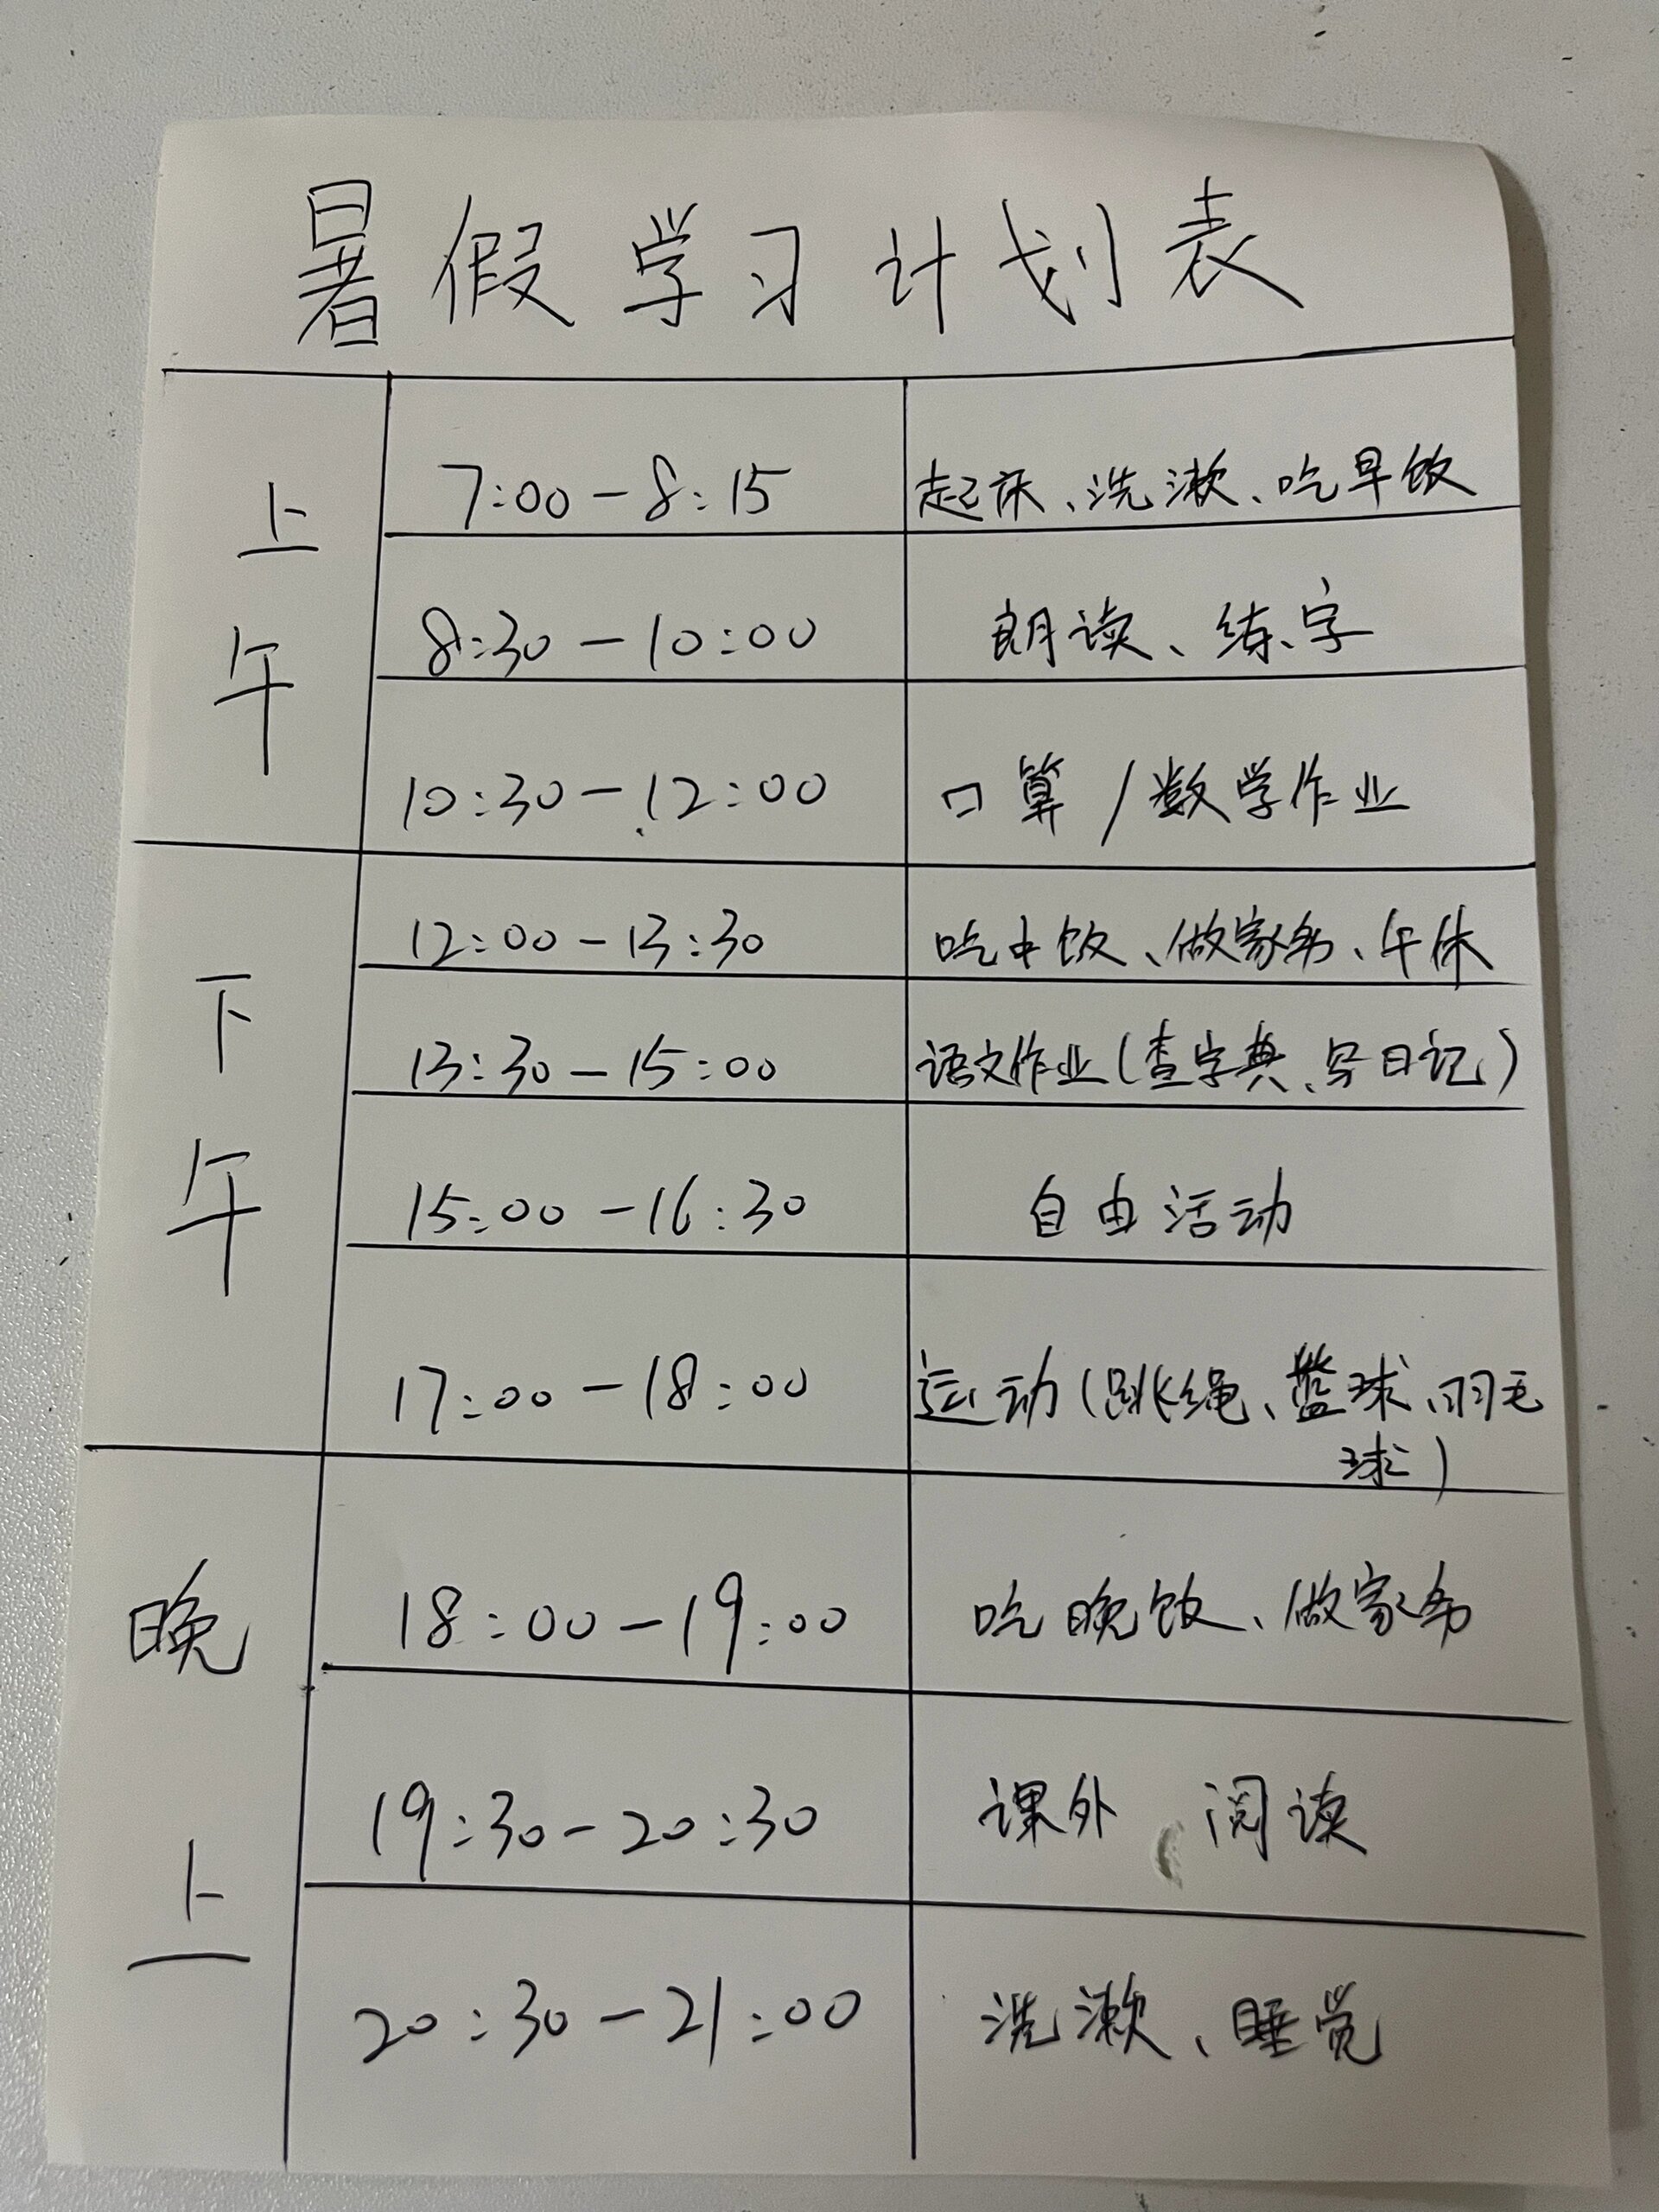 暑假学习计划表
上午
7:00-8:15 起床、洗漱、吃早饭
8:30-10:00 朗读、练字
10:30-12:00 口算/数学作业
下午
12:00-13:30 吃中饭、做家务、午休
13:30-15:00 语文作业(查字典、写日记)
15:00-16:30 自由活动
17:00-18:00 运动(跳绳、篮球、羽毛
球)
晚上
18:00-19:00 吃晚饭、做家务
19:30-20:30 课外阅读
20:30-21:00 洗漱、睡觉